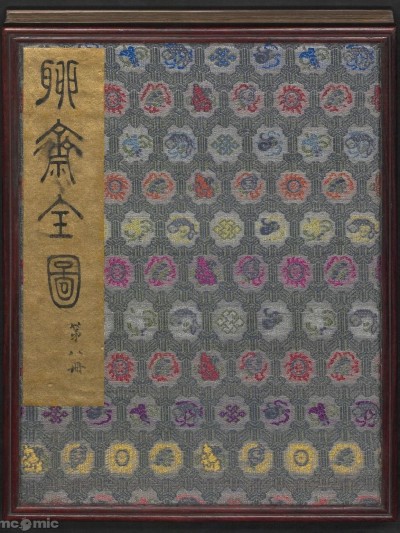 聊齋全圖
第八冊
mcomic